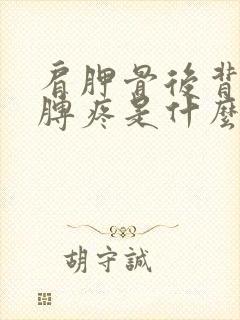 肩胛骨後背
髀疼是什麼
胡守誠